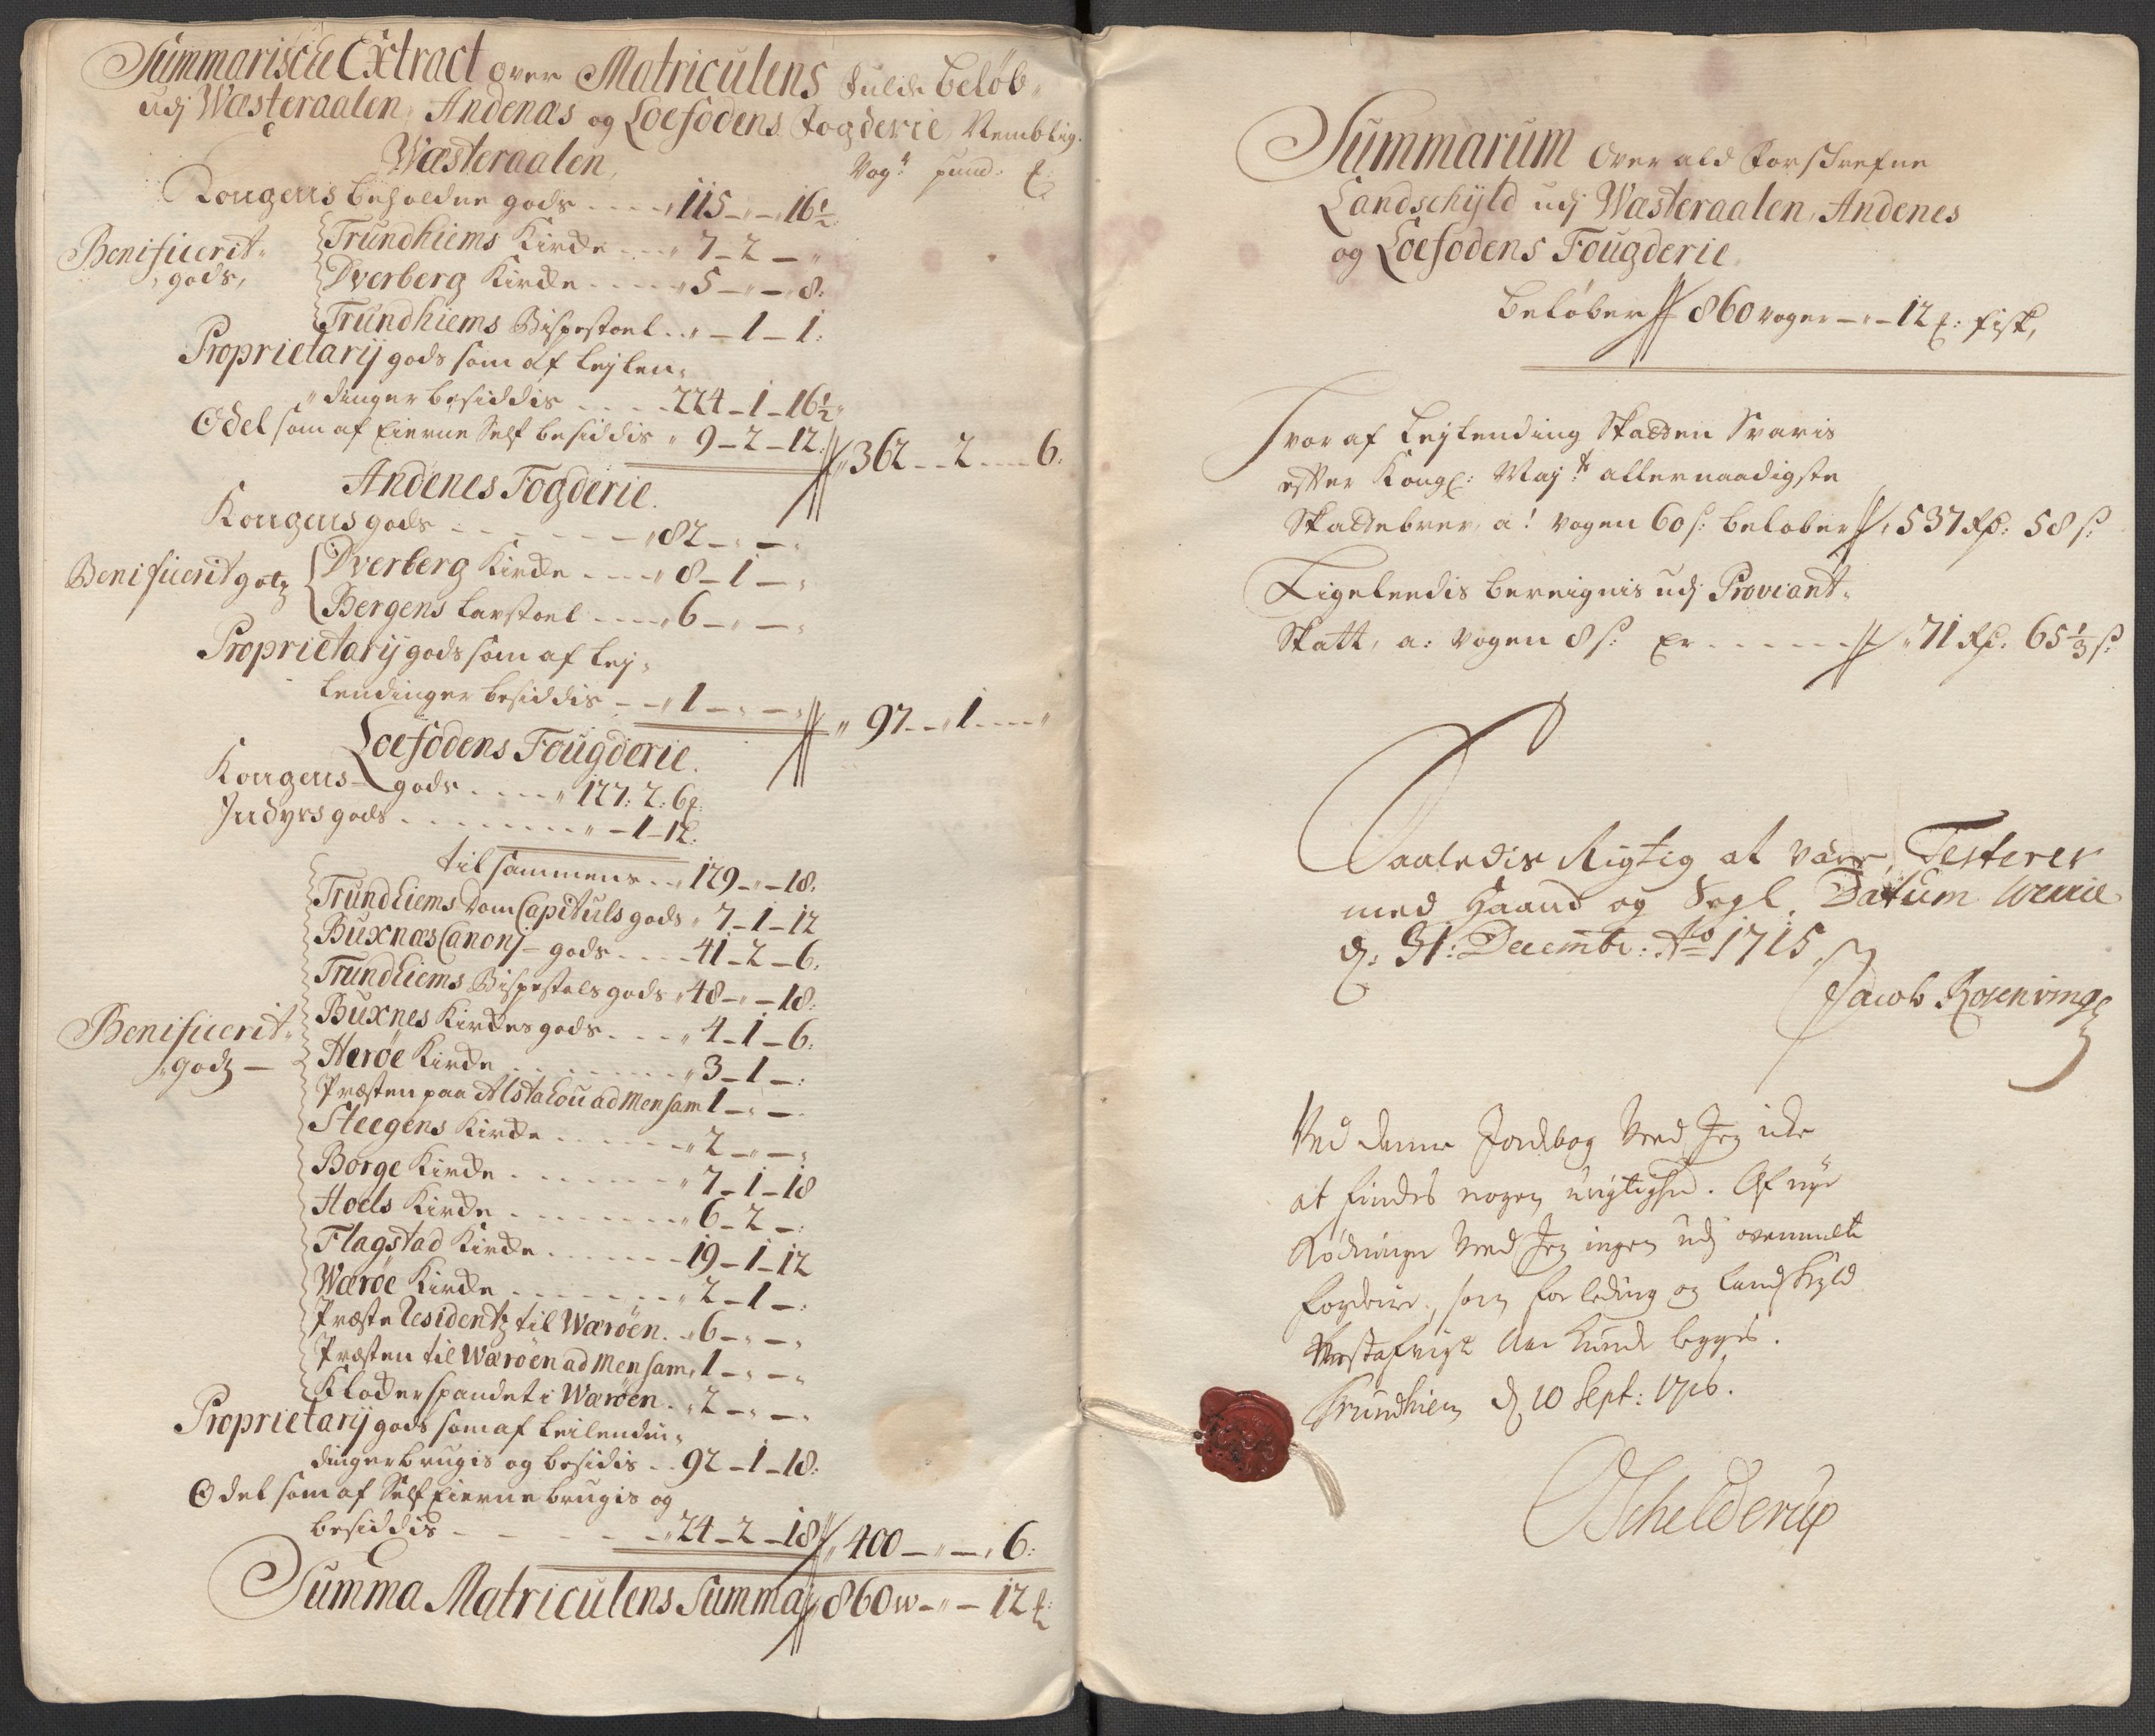 Summarische Extract over Matriculens fulde beløb
udj Wæsteraalen, Andenæs og Loefodens Fogderie, Nemblig.
Wæsteraalen,
Vog:r pund: ℔
Kongens beholdne gods - - - - 115 - „ - 16½
Benificerit-
gods,
Trundhiems Kirche - - - „ 7 - 2 - „
Dverberg Kirche - - - - „ 5 - „ - 8:
Trundhiems Bispestoel - - „ - 1 - 1:
Proprietarij gods som af Lejlen-
dinger besiddis - - - - 224 - 1 - 16½
Odel som af Eierne Self besiddis „ 9 - 2 - 12: // 362 - - 2 - - - - 6:
Andenes Fogderie.
Kongens gods - - - - - - - „ 82 - „ - „
Benificerit gotz
Dverberg Kirche - - - - „ 8 - 1 - „
Bergens Lavstoel - - - - „ 6 - „ - „
Proprietarij gods som af Lej-
lendinger besiddis - - „ 1 - „ - „ // „ 97 - - „ 1 - - - - „
Loefodens Fougderie.
Kongens gods - - - - „ 127: 2: 6℔
Indyrs gods - - - - - - - - „ - 1 - 12:
tilsammens - - „ 129 - „ - 18.
Benificerit-
godtz -
Trundhiems Dom Capituls gods „ 7 - 1 - 12
Buxnæs Canonj - gods - - - - 41 - 2 - 6.
Trundhiems Bispestols gods „ 48 - „ - 18:
Buxnes Kirches gods - - - „ 4 - 1 - 6:
Herøe Kirche - - - - - - - „ 3 - 1 - :
Præsten paa Alstahou ad Mensam 1 - „ - „
Steegens Kirche - - - - - - „ 2 - „ - „
Borge Kirche - - - - - - „ 7 - 1 - 18
Hoels Kirche - - - - - - - „ 6 - 2 - :
Flagstad Kirche - - - - - - 19 - 1 - 12
Wærøe Kirche - - - - - - - „ 2 - 1 - :
Præste Residentz til Wærøen - „ 6 - „ - „
Præsten til Wærøen ad Mensam „ 1 - „ - „
Kloderspandet i Wærøen - „ 2 - „ - „
Proprietarij gods som af Leilendin-
dinger brugis og besidis - - 92 - 1 - 18:
Odel som af Self Eierne brugis og
besiddis - - - - - - „ 24 - 2 - 18 // „ 400 - „ - „ 6:
Summa Matriculens Summa // 860 w - „ - 12 ℔

Summarum Over ald Forschrefne
Landschyld udj Wæsteraalen, Andenes
og Loefodens Fougderie,
beløber // 860 voger - „ - 12 ℔: fisk,
Hvor af Leylending Skatten Svaris
efter Kongl: Maj:ts allernaadigste
Skattebrev, a! vogen 60 s: beløber // „ 537 Rd: 58 s:
Ligeleedis bereignis udj Proviant-
Skatt, a: vogen 8 s: Er - - - - - // „ 71 Rd: 65⅓ s:
Saaledis Rigtig at være, Testerer
med Haand og Segl. Datum Werrie
d: 31: Decembr: Ao 1715,
Jacob Rosenvinge
Ved denne Jordebog Veed Jeg icke
at findes nogen urigtighed. Af nye
Rødninger Veed Jeg ingen udj ovenmelte
fogderie, som for leding og landskyld
Aar kunde legges.
Trundhiem d 10 Sept: 1716.
OSchelderup